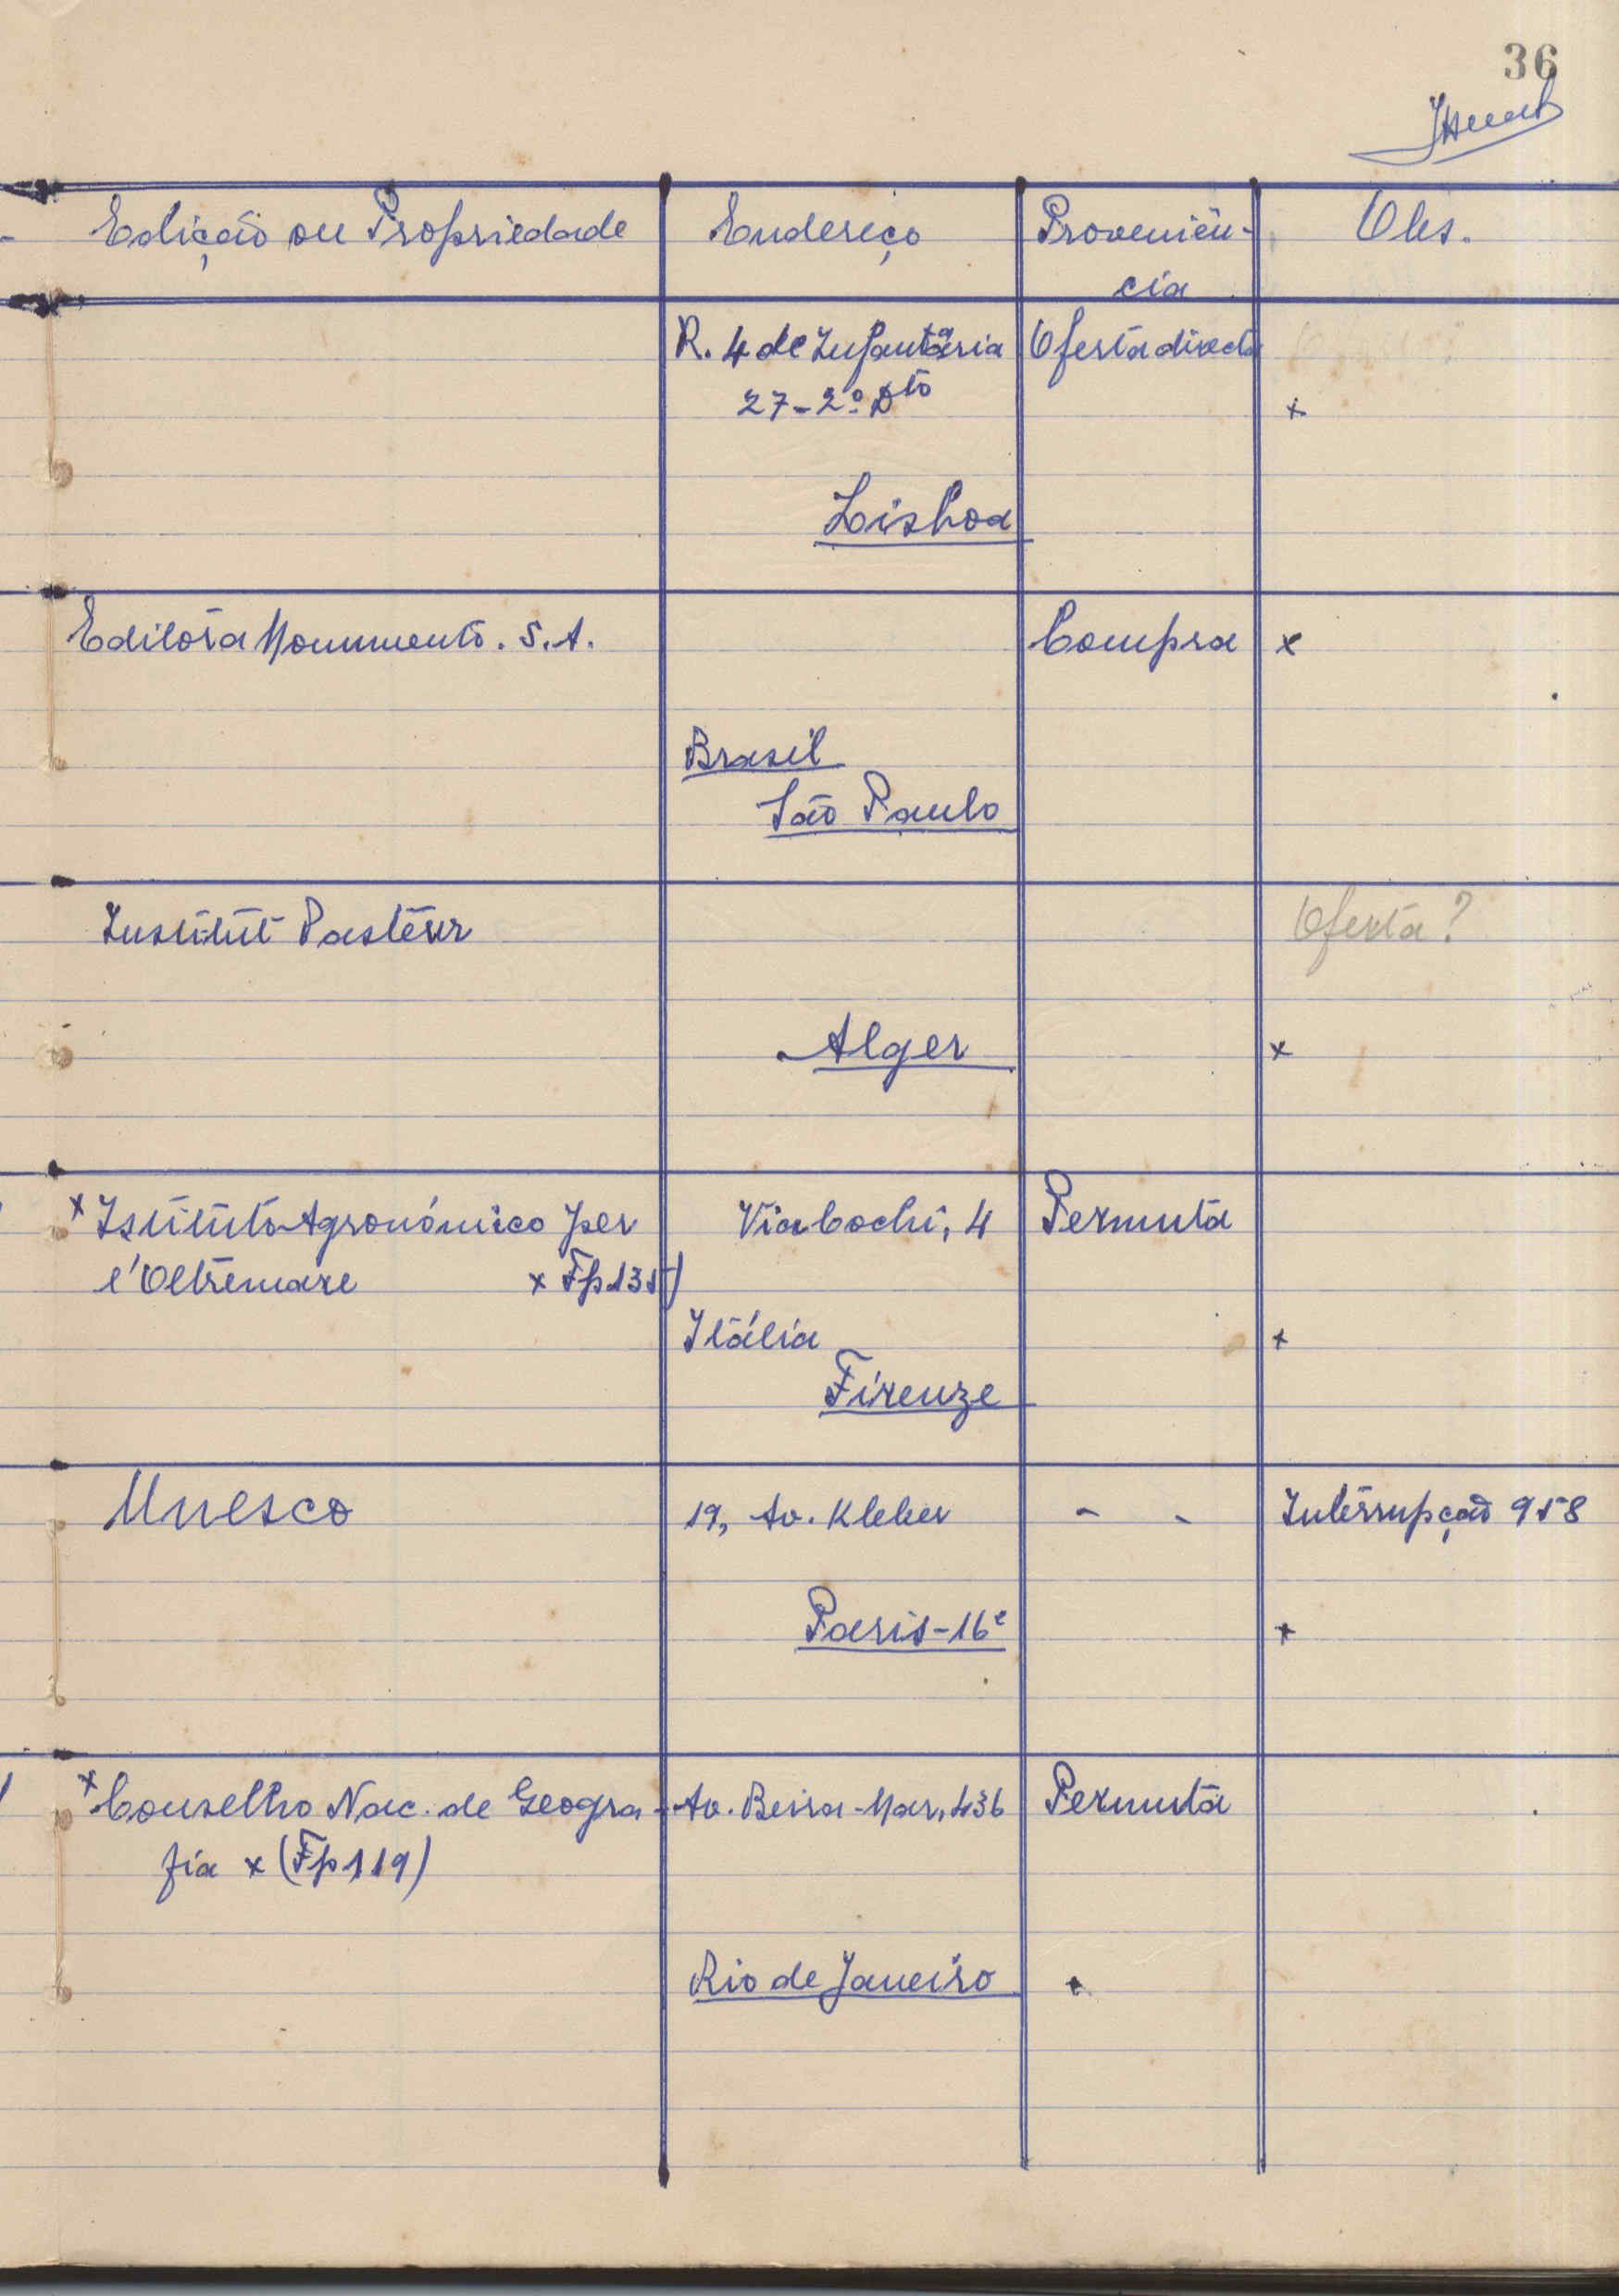 36
Edição ou Propriedade Endereço Proveniên-
cia Obs.
R. 4 de Infantaria Oferta directa
27-2º Dto x
Lisboa
Editora Monumento. S.A. Compra x
Brasil
São Paulo
Institut Pasteur Oferta?
Alger x
x Istituto Agronómico per Via Cochi, 4 Permuta
l'Oltremare x Fp 131)
Itália x
Firenze
Unesco 19, Av. Kleber - - Interrupção 958
Paris-16e x
x Conselho Nac. de Geogra- Av. Beira-Mar, 436 Permuta
fia x (Fp 119)
Rio de Janeiro x